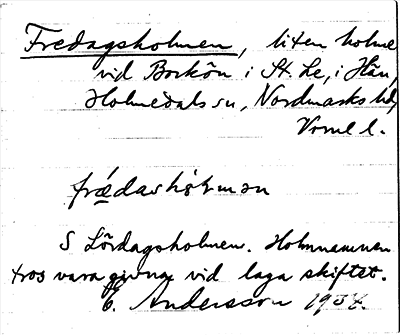 Fredagsholmen, liten holme
vid Borkön i St. Le, i Hån,
Holmedals sn, Nordmarks hd,
Vrml l.
frǽdashɷ̀ɫmən
S Lördagsholmen. Holmnamnen
tros vara givna vid laga skiftet.
E. Andersson 1934.